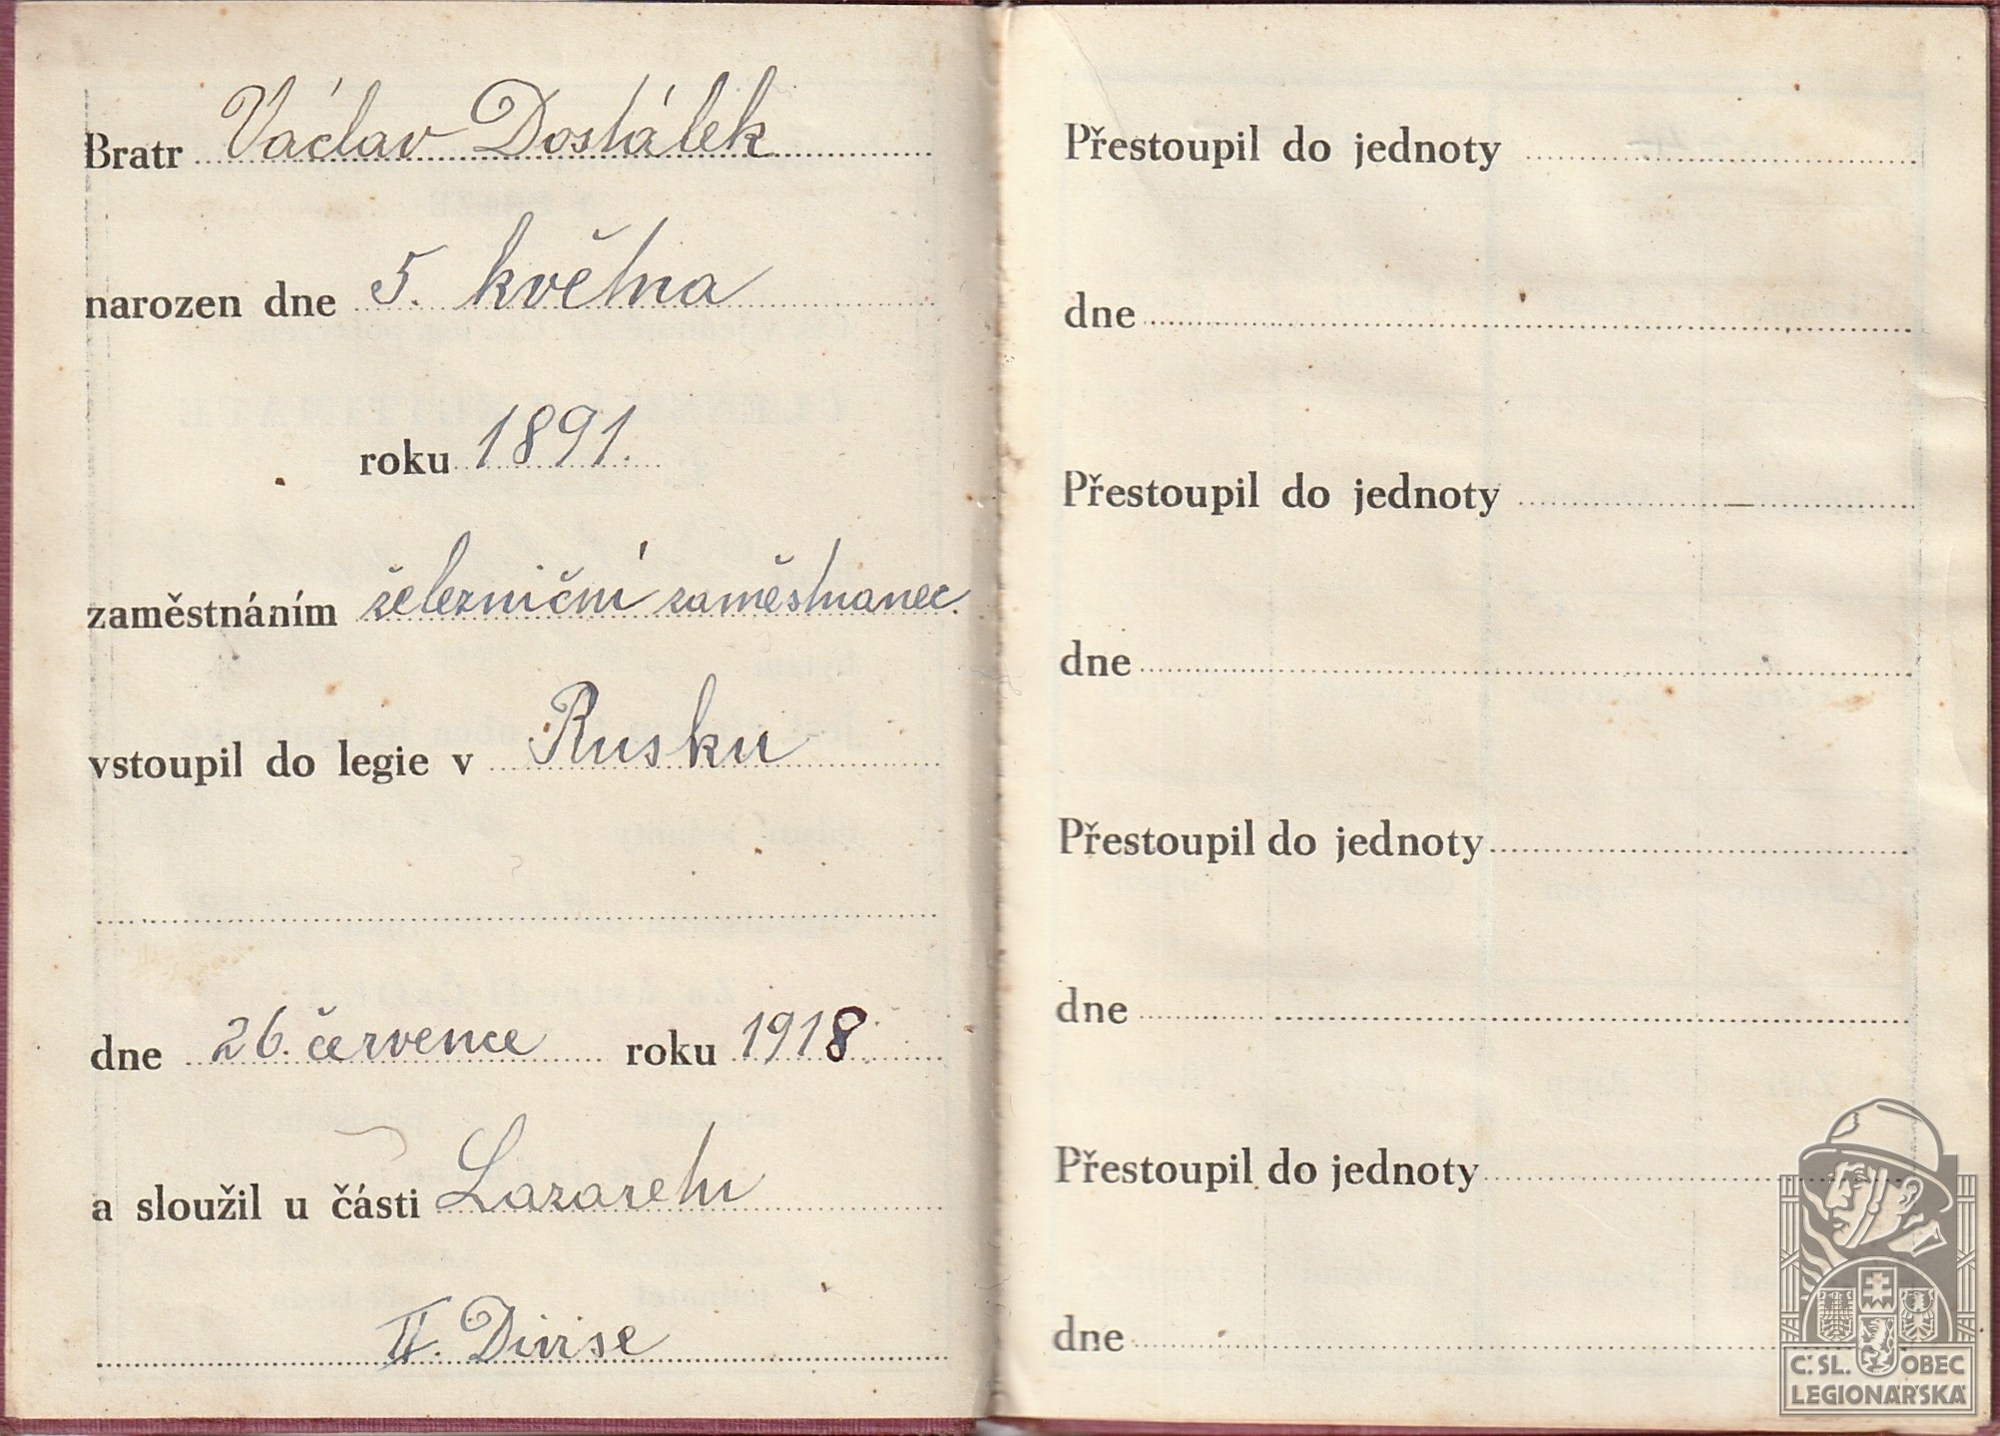 Bratr Václav Dostálek
narozen dne 5. května
roku 1891.
zaměstnáním železniční zaměstnanec.
vstoupil do legie v Rusku
dne 26. července roku 1918
a sloužil u části Lazaretu
II. Divise
Přestoupil do jednoty
dne
Přestoupil do jednoty
dne
Přestoupil do jednoty
dne
Přestoupil do jednoty
dne
Č. SL. OBEC
LEGIONÁŘSKÁ